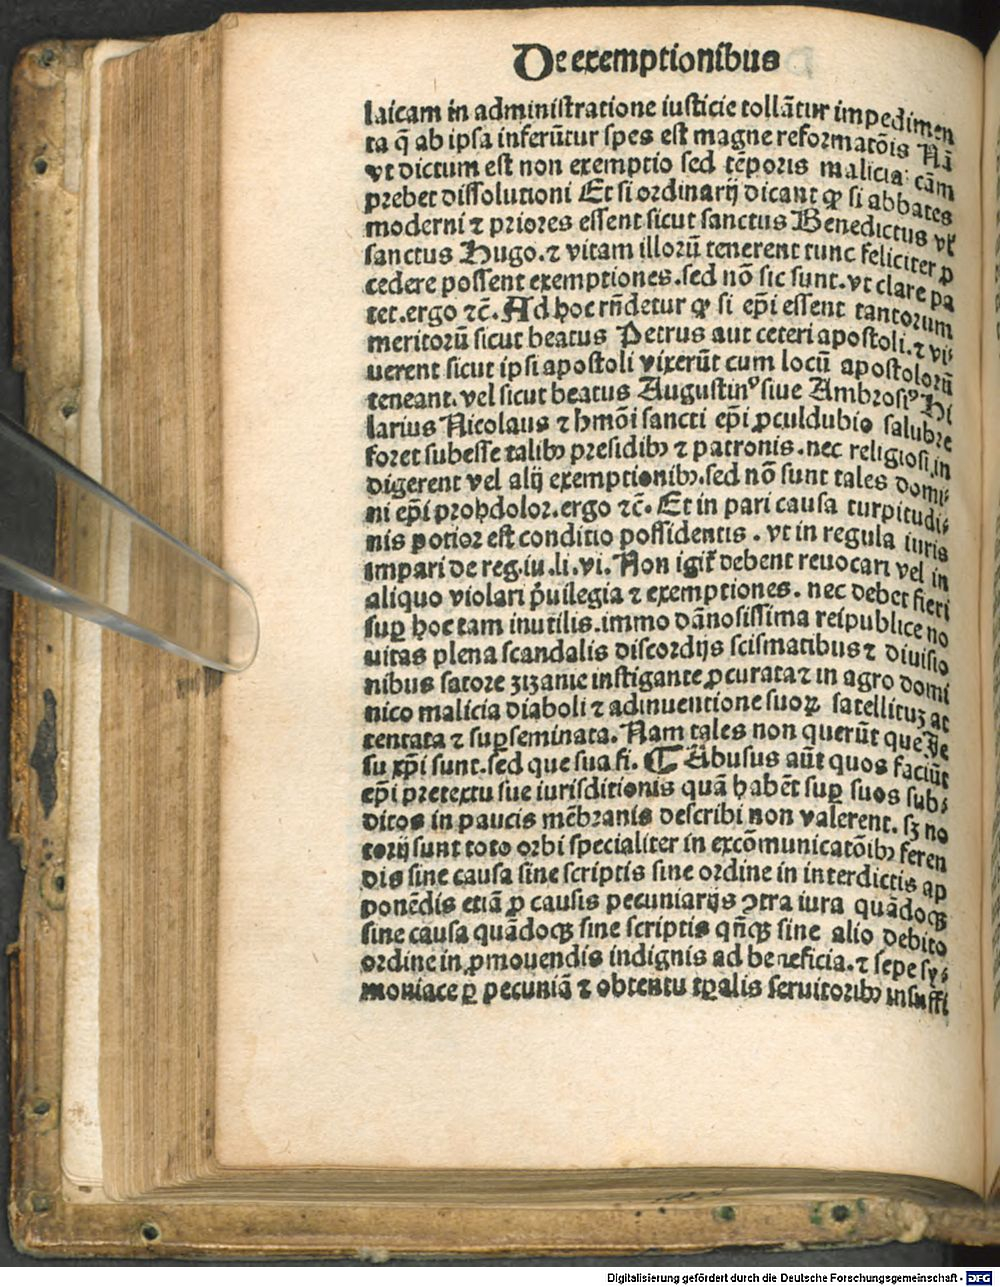 De exemptionibus
laicam in administratione iusticie tollãtur impedimen
ta q̃ ab ipsa inferũtur spes est magne reformatõis Nã
vt dictum est non exemptio sed tẽporis malicia: cãm
prebet dissolutioni Et si ordinarij dicant ꝙ si abbates
moderni ⁊ priores essent sicut sanctus Benedictus vl̕
sanctus Hugo. ⁊ vitam illorũ tenerent tunc feliciter ꝓ
cedere possent exemptiones. sed nõ sic sunt. vt clare pa
tet. ergo ⁊c̃. Ad hoc rñdetur ꝙ si ep̃i essent tantorum
meritorũ sicut beatus Petrus aut ceteri apostoli. ⁊ vi⸗
uerent sicut ipsi apostoli vixerũt cum locũ apostolorũ
teneant. vel sicut beatus Augustinꝰ siue Ambrosiꝰ Hi
larius Nicolaus ⁊ hmõi sancti ep̃i ꝓculdubio salubre
foret subesse talibꝫ presidibꝫ ⁊ patronis. nec religiosi in
digerent vel alij exemptionibꝫ. sed nõ sunt tales domi⸗
ni ep̃i prohdolor. ergo ⁊c̃. Et in pari causa turpitudi⸗
nis potior est conditio possidentis. vt in regula iuris
impari de reg. iu. li. vi. Non igit̃ debent reuocari vel in
aliquo violari p̃uilegia ⁊ exemptiones. nec debet fieri
suꝑ hoc tam inutilis. immo dãnosissima reipublice no
uitas plena scandalis discordijs scismatibus ⁊ diuisio
nibus satore zizanie instigante ꝓcurata ⁊ in agro domi
nico malicia diaboli ⁊ adinuentione suoꝝ satellituꝫ at
tentata ⁊ suꝑseminata. Nam tales non querũt que Je
su xp̃i sunt. sed que sua fi. ¶ Abusus aũt quos faciũt
ep̃i pretextu sue iurisditionis quã habẽt suꝑ suos sub⸗
ditos in paucis mẽbranis describi non valerent. sꝫ no
torij sunt toto orbi specialiter in excõmunicatõibꝫ feren
dis sine causa sine scriptis sine ordine in interdictis ap
ponẽdis etiã ꝓ causis pecuniarijs ꝯtra iura quãdoqꝫ
sine causa quãdoqꝫ sine scriptis qñqꝫ sine alio debito
ordine in ꝓmouendis indignis ad beneficia. ⁊ sepe sy⸗
moniace ꝑ pecuniã ⁊ obtentu tꝑalis seruitoribꝫ insuffi
Digitalisierung gefördert durch die Deutsche Forschungsgemeinschaft - DFG